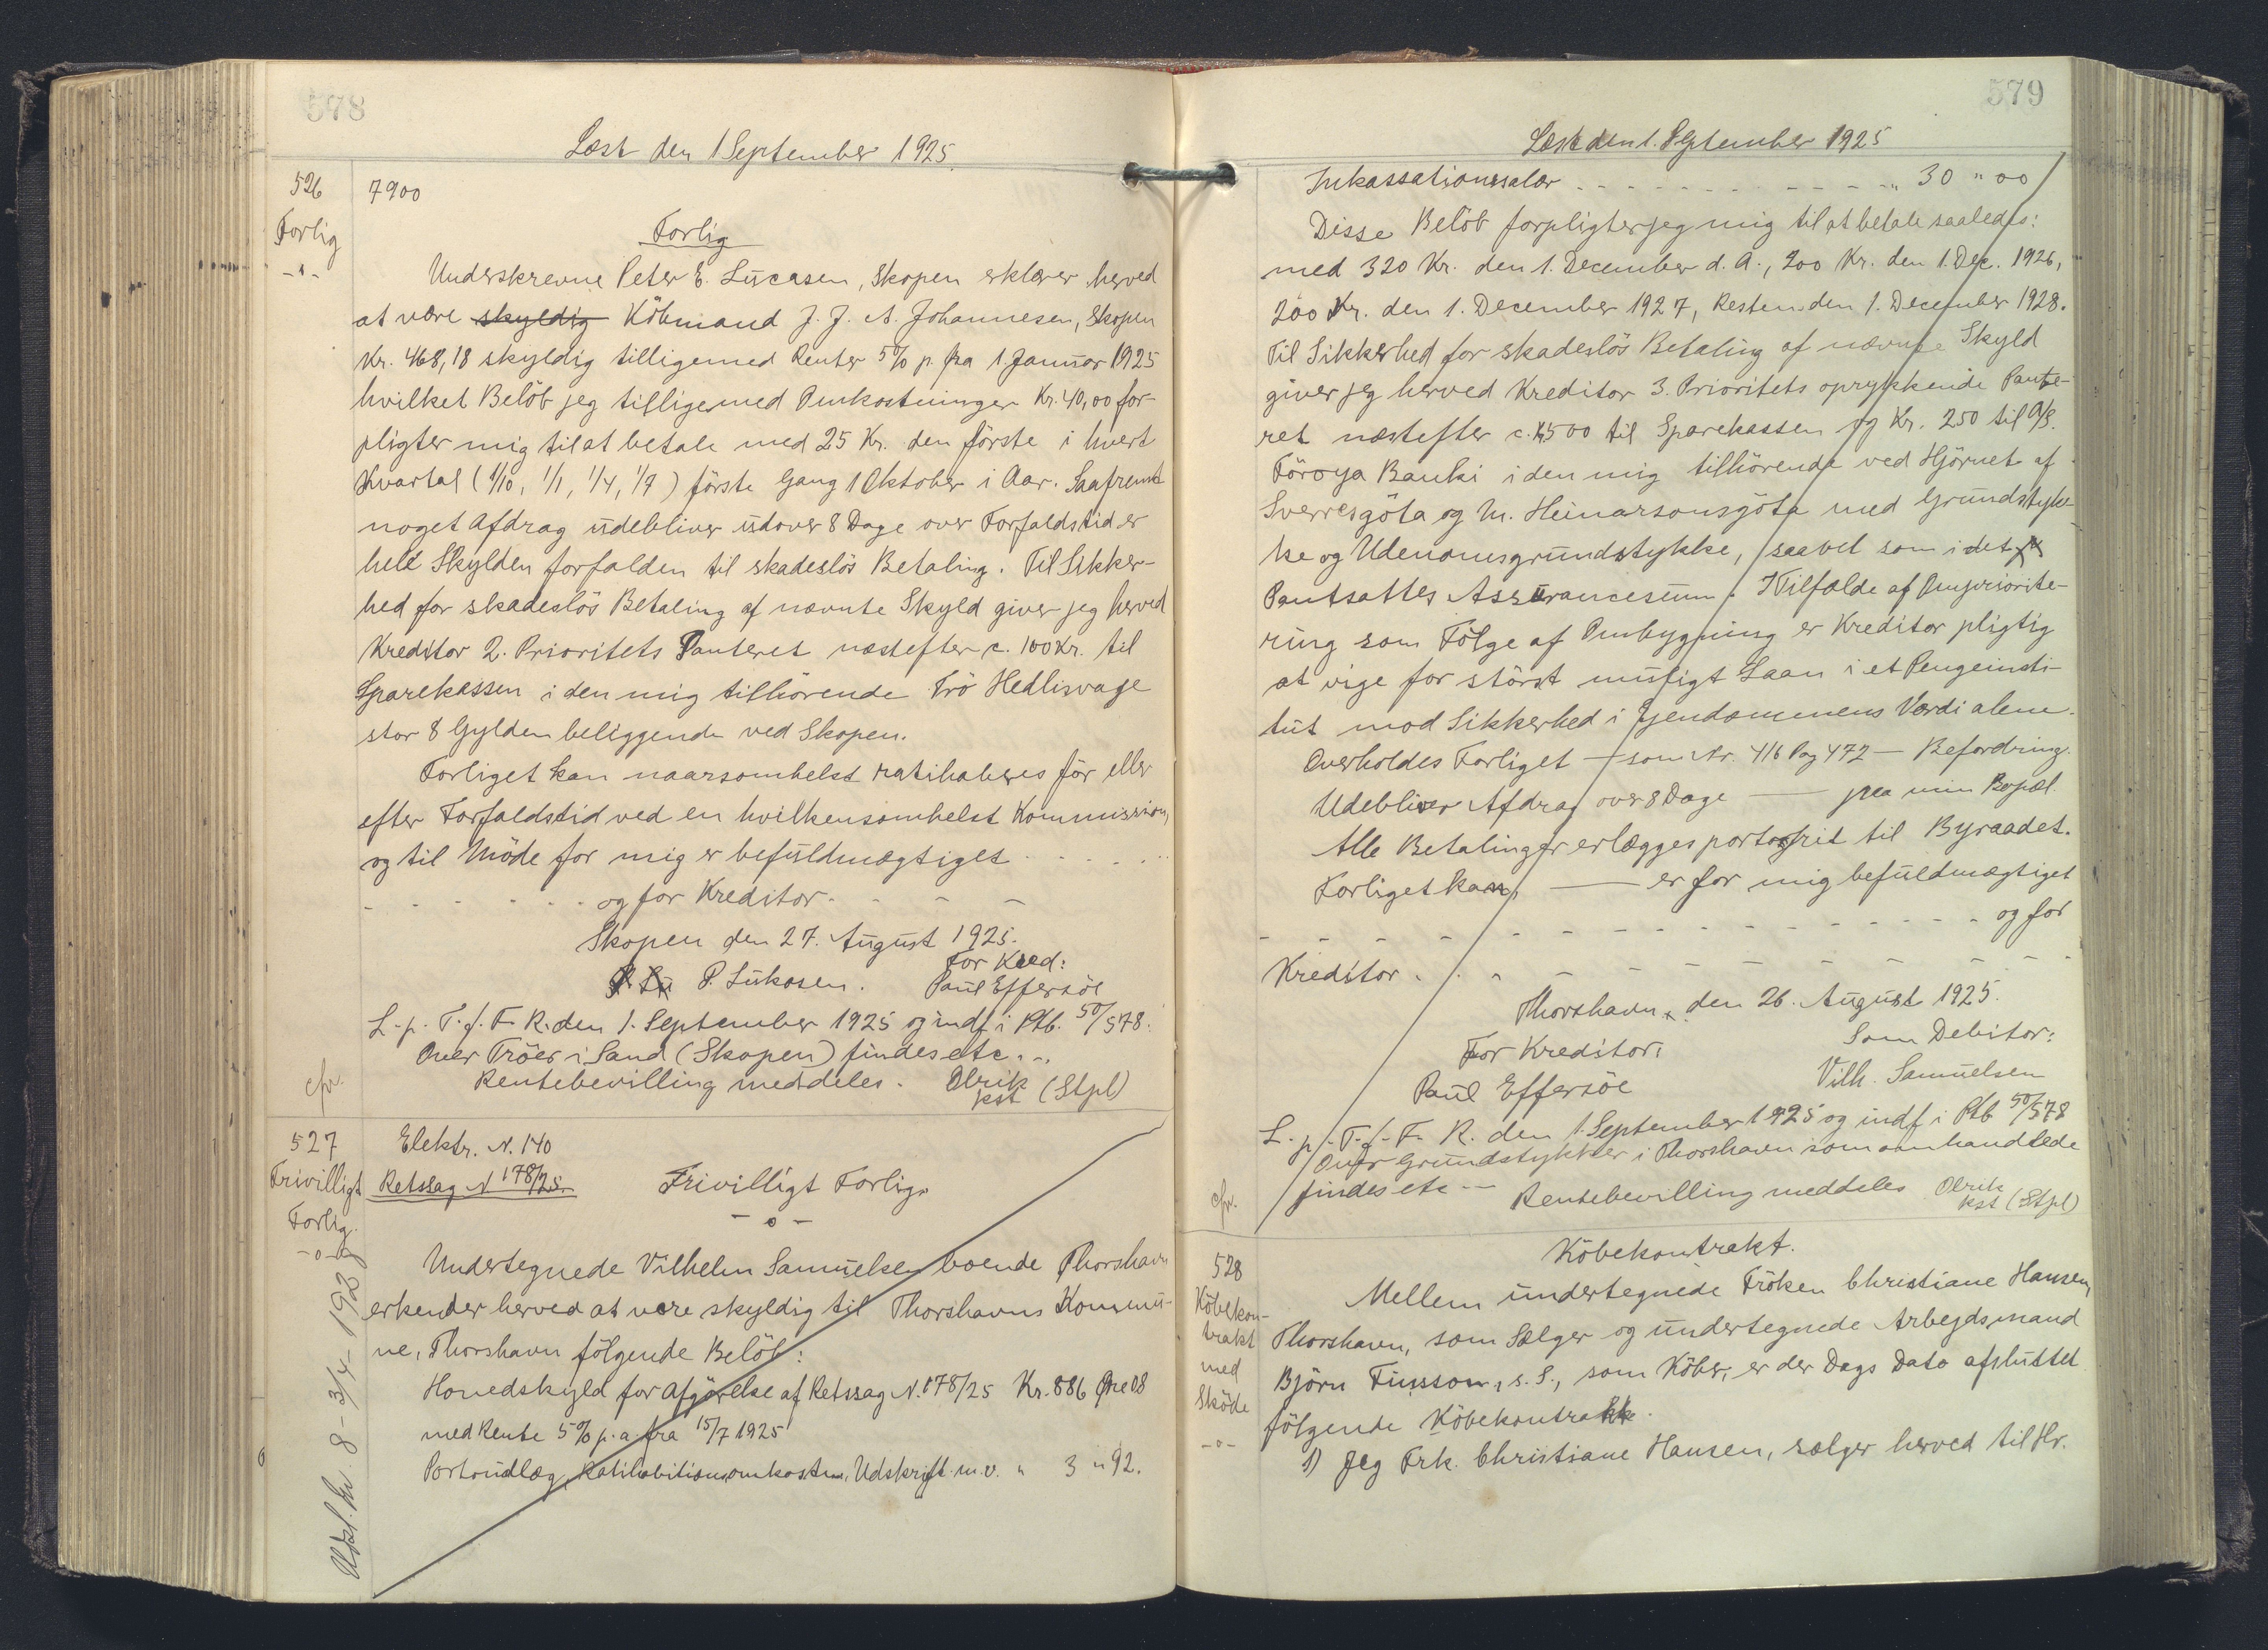 578
Læst den 1 September 1925
526
Forlig
-"-
7900
Forlig
Underskrevne Peter E. Lucasen, Skopen erklærer herved
at være skyldig Köbmand J. J. A. Johannesen, Skopen
Kr. 468,18 skyldig tilligemed Renter 5% p. fra 1. Januar 1925
hvilket Belöb jeg tilligemed Omkostninger Kr. 40,00 for-
pligter mig til at betale med 25 Kr. den förste i hvert
Kvartal (1/10, 1/1, 1/4, 1/7) förste Gang 1 Oktober i Aar. Saafremt
noget Afdrag udebliver udover 8 Dage over Forfaldstid er
hele Skylden forfalden til skadeslös Betaling. Til Sikker-
hed for skadeslös Betaling af nævnte Skyld giver jeg herved
Kreditor 2. Prioritets Panteret næstefter c. 100 Kr. til
Sparekassen i den mig tilhörende Trö Hedlisvage
stor 8 Gylden beliggende ved Skopen.
Forliget kan naarsomhelst ratihaberes för eller
efter Forfaldstid ved en hvilkensomhelst Kommission,
og til Möde for mig er befuldmægtiget - - - - -
- - - - - - og for Kreditor - - - -
Skopen den 27. August 1925.
For Kred:
P. Lukasen. Paul Effersöe
L. p. T. f. F. R. den 1. September 1925 og indf. i Ptb. 50/578.
Over Tröer i Sand (Skopen) findes etc. - -
cfr.
Rentebevilling meddeles. Olrik
kst (Stpl)
527
Frivilligt
Forlig.
-o-
Elektr. N. 140
Retssag N 178/25.
Frivilligt Forlig.
- o -
Undertegnede Vilhelm Samuelsen boende Thorshavn
erkender herved at være skyldig til Thorshavns Kommu-
ne, Thorshavn fölgende Belöb:
Hovedskyld for Afgörelse af Retssag N. 178/25 Kr. 886 Øre 08
med Rente 5% p.a. fra 15/7 1925
Portoudlæg, Ratihabitionsomkostn., Udskrift m.v. " 3 " 92.
Udsl. kv. 8 - 3/4 - 192
579
Læst den 1. September 1925
Inkassationssalær - - - - - - - - - " 30 " 00
Disse Belöb forpligter jeg mig til at betale saaledes:
med 320 Kr. den 1. December d. A., 200 Kr. den 1. Dec. 1926,
200 Kr. den 1. December 1927, Resten den 1. December 1928.
Til Sikkerhed for skadeslös Betaling af nævnte Skyld
giver jeg herved Kreditor 3. Prioritets oprykkende Pante-
ret næstefter c. 4500 til Sparekassen og Kr. 250 til A/S.
Föroya Banki i den mig tilhörende ved Hjörnet af
Sverresgöta og M. Heinarsonsgöta med Grundstyk-
ke og Udenomsgrundstykke, saavel som i det
Pantsattes Assurancesum. I Tilfælde af Omprioite-
ring som Fölge af Ombygning er Kreditor pligtig
at vige for störst muligt Laan i et Pengeinsti-
tut mod Sikkerhed i Ejendommens Værdi alene.
Overholdes Forliget - som Nr. 416 Pag 472 - Befordring.
Udebliver Afdrag over 8 Dage - paa min Bopæl.
Alle Betalinger erlægges portofrit til Byraadet.
Forliget kan - er for mig befuldmægtiget
- - - - - - - - - - - - og for
Kreditor - - - - - - - - - -
Thorshavn, den 26. August 1925.
For Kreditor: Som Debitor:
Paul Effersöe Vilh. Samuelsen
L. p. T. f. F. R. den 1. September 1925 og indf i Ptb 50/578
Over Grundstykker i Thorshavn som omhandlede
findes etc - - Rentebevilling meddeles Olrik
cfr.
kst (Stpl)
528
Köbekon-
trakt
med
Sköde
-o-
Köbekontrakt.
Mellem undertegnede Fröken Christiane Hansen,
Thorshavn, som Sælger og undertegnede Arbejdsmand
Björn Finsson, s. S., som Köber, er der Dags Dato afsluttet
fölgende Köbekontrakt.
1) Jeg Frk. Christiane Hansen, sælger herved til Hr.